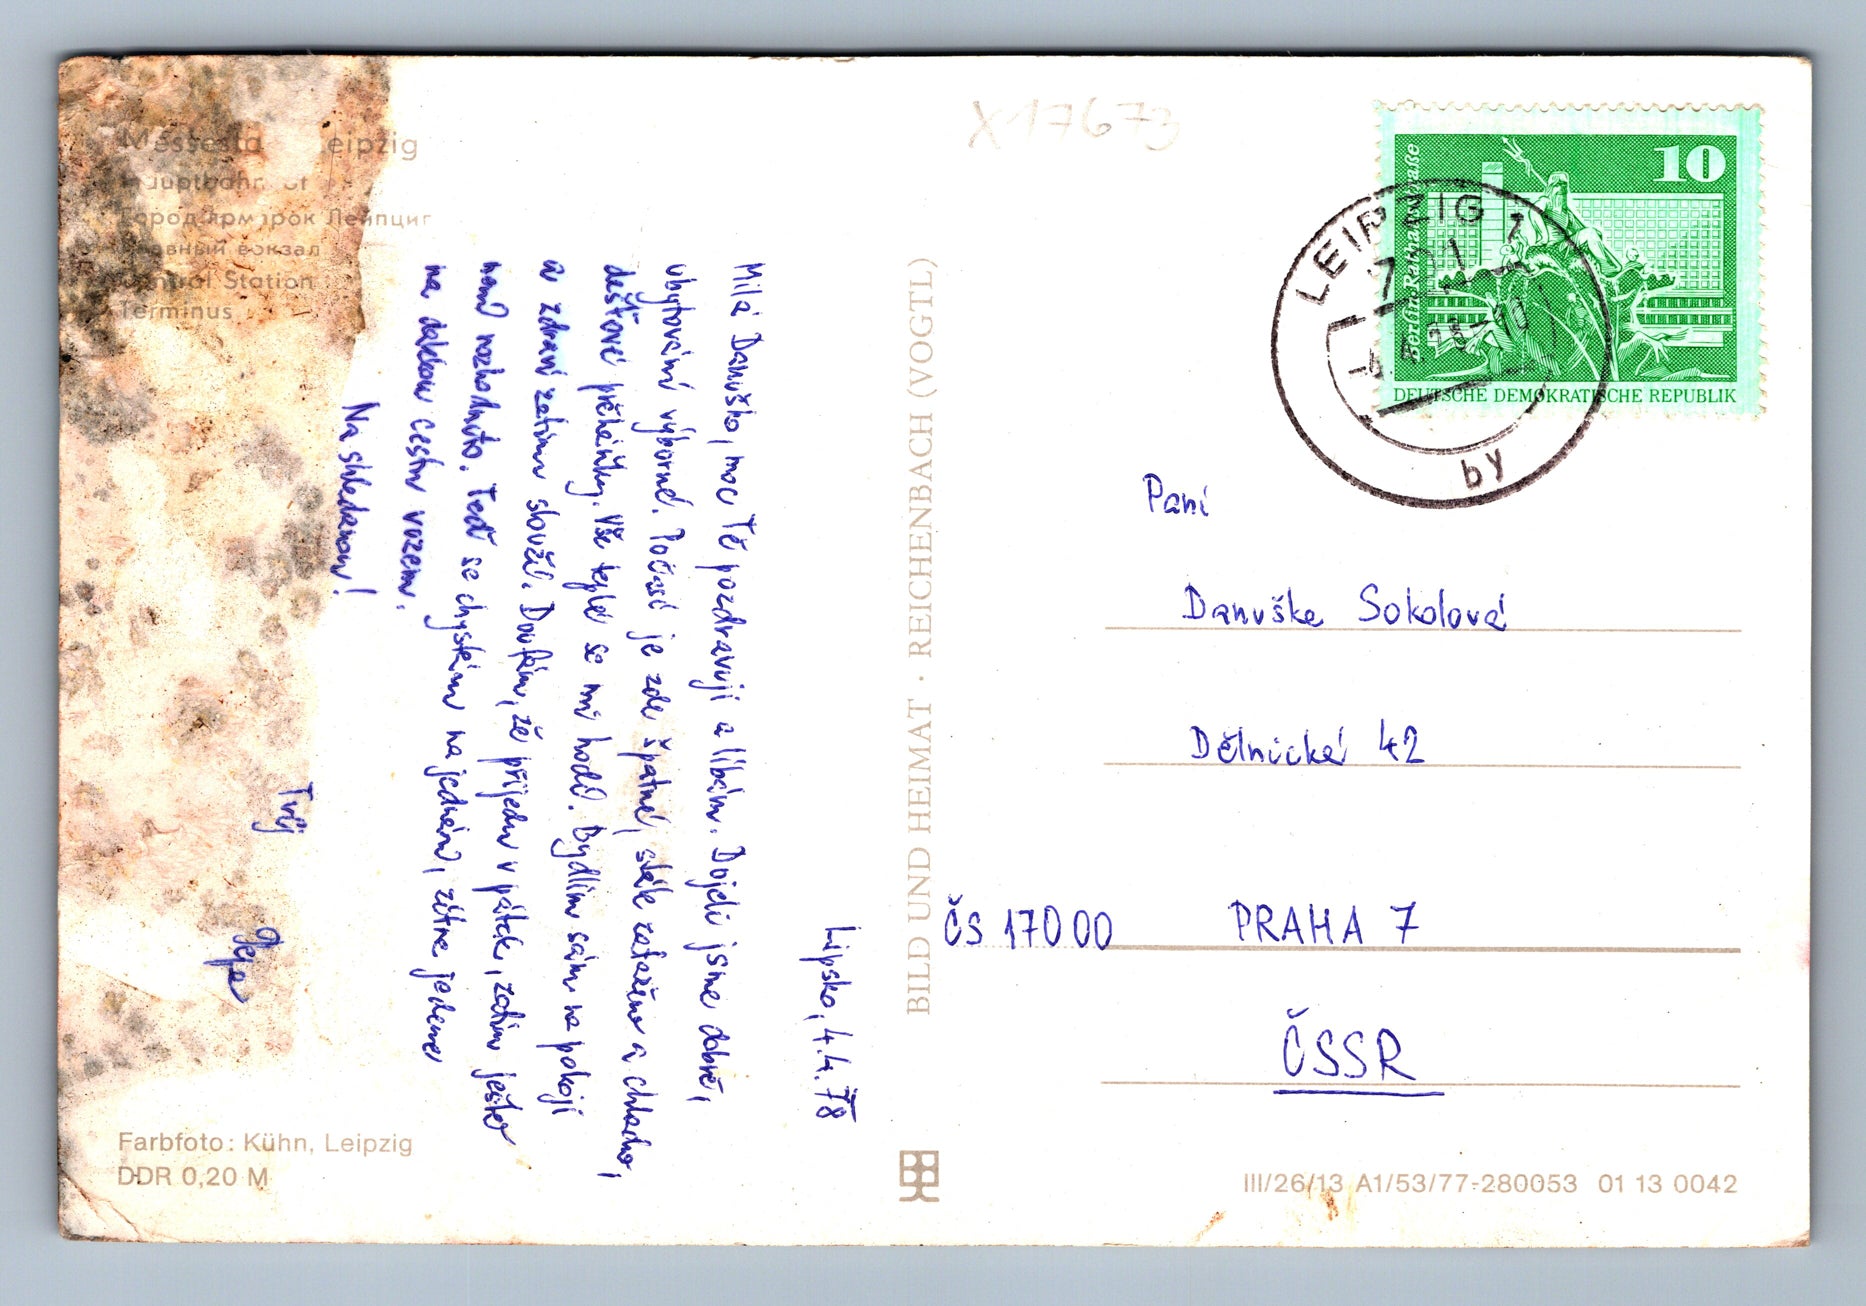 Messesta eipzig
Hauptbahn of
Город ярмарок Лейпциг
вокзал
Central Station
Terminus
Lipsko, 4.4.78
Milá Danuško, moc Tě pozdravuji a líbám. Dojeli jsme dobře,
ubytování výborné. Počasí je zde špatné, stále zataženo a chladno,
dešťové přeháňky. Vše teplé se mi hodí. Bydlím sám na pokoji
a zdraví zatím slouží. Doufám, že přijedu v pátek, zatím ještě
není rozhodnuto. Teď se chystám na jednání, zítra jedeme
na dalekou cestu vozem.
Na shledanou!
Tvůj
Farbfoto: Kühn, Leipzig
DDR 0,20 M
BILD UND HEIMAT · REICHENBACH (VOGTL)
X17673
10
Berlin Rathausstraße
DEUTSCHE DEMOKRATISCHE REPUBLIK
LEIPZIG 1
by
Paní
Danuška Sokolová
Dělnická 42
ČS 17000 PRAHA 7
ČSSR
III/26/13 A1/53/77-280053 01 13 0042